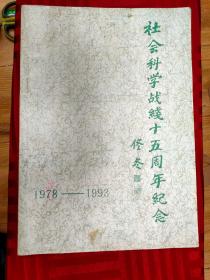 社会科学战线十五周年纪念
1978——1993